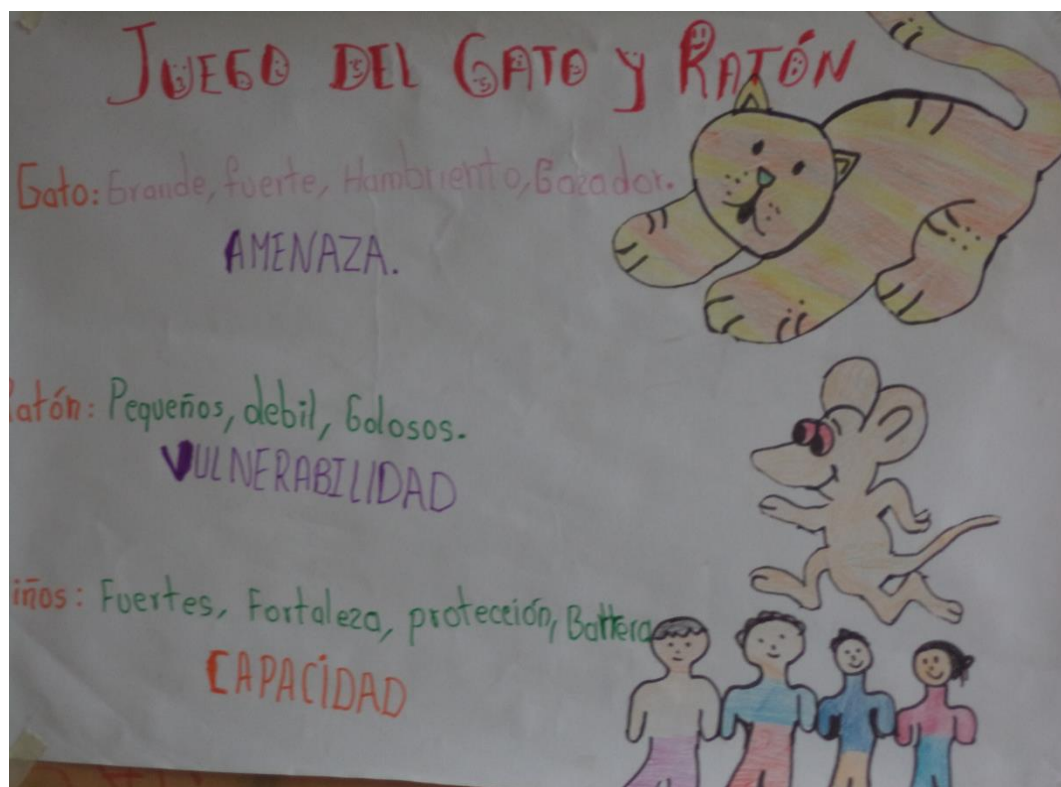 JUEGO DEL GATO Y RATÓN
Gato: Grande, fuerte, Hambriento, Gozador.
AMENAZA.
atón: Pequeños, debil, Golosos.
VULNERABILIDAD
iños: Fuertes, Fortaleza, protección, Barrera
CAPACIDAD